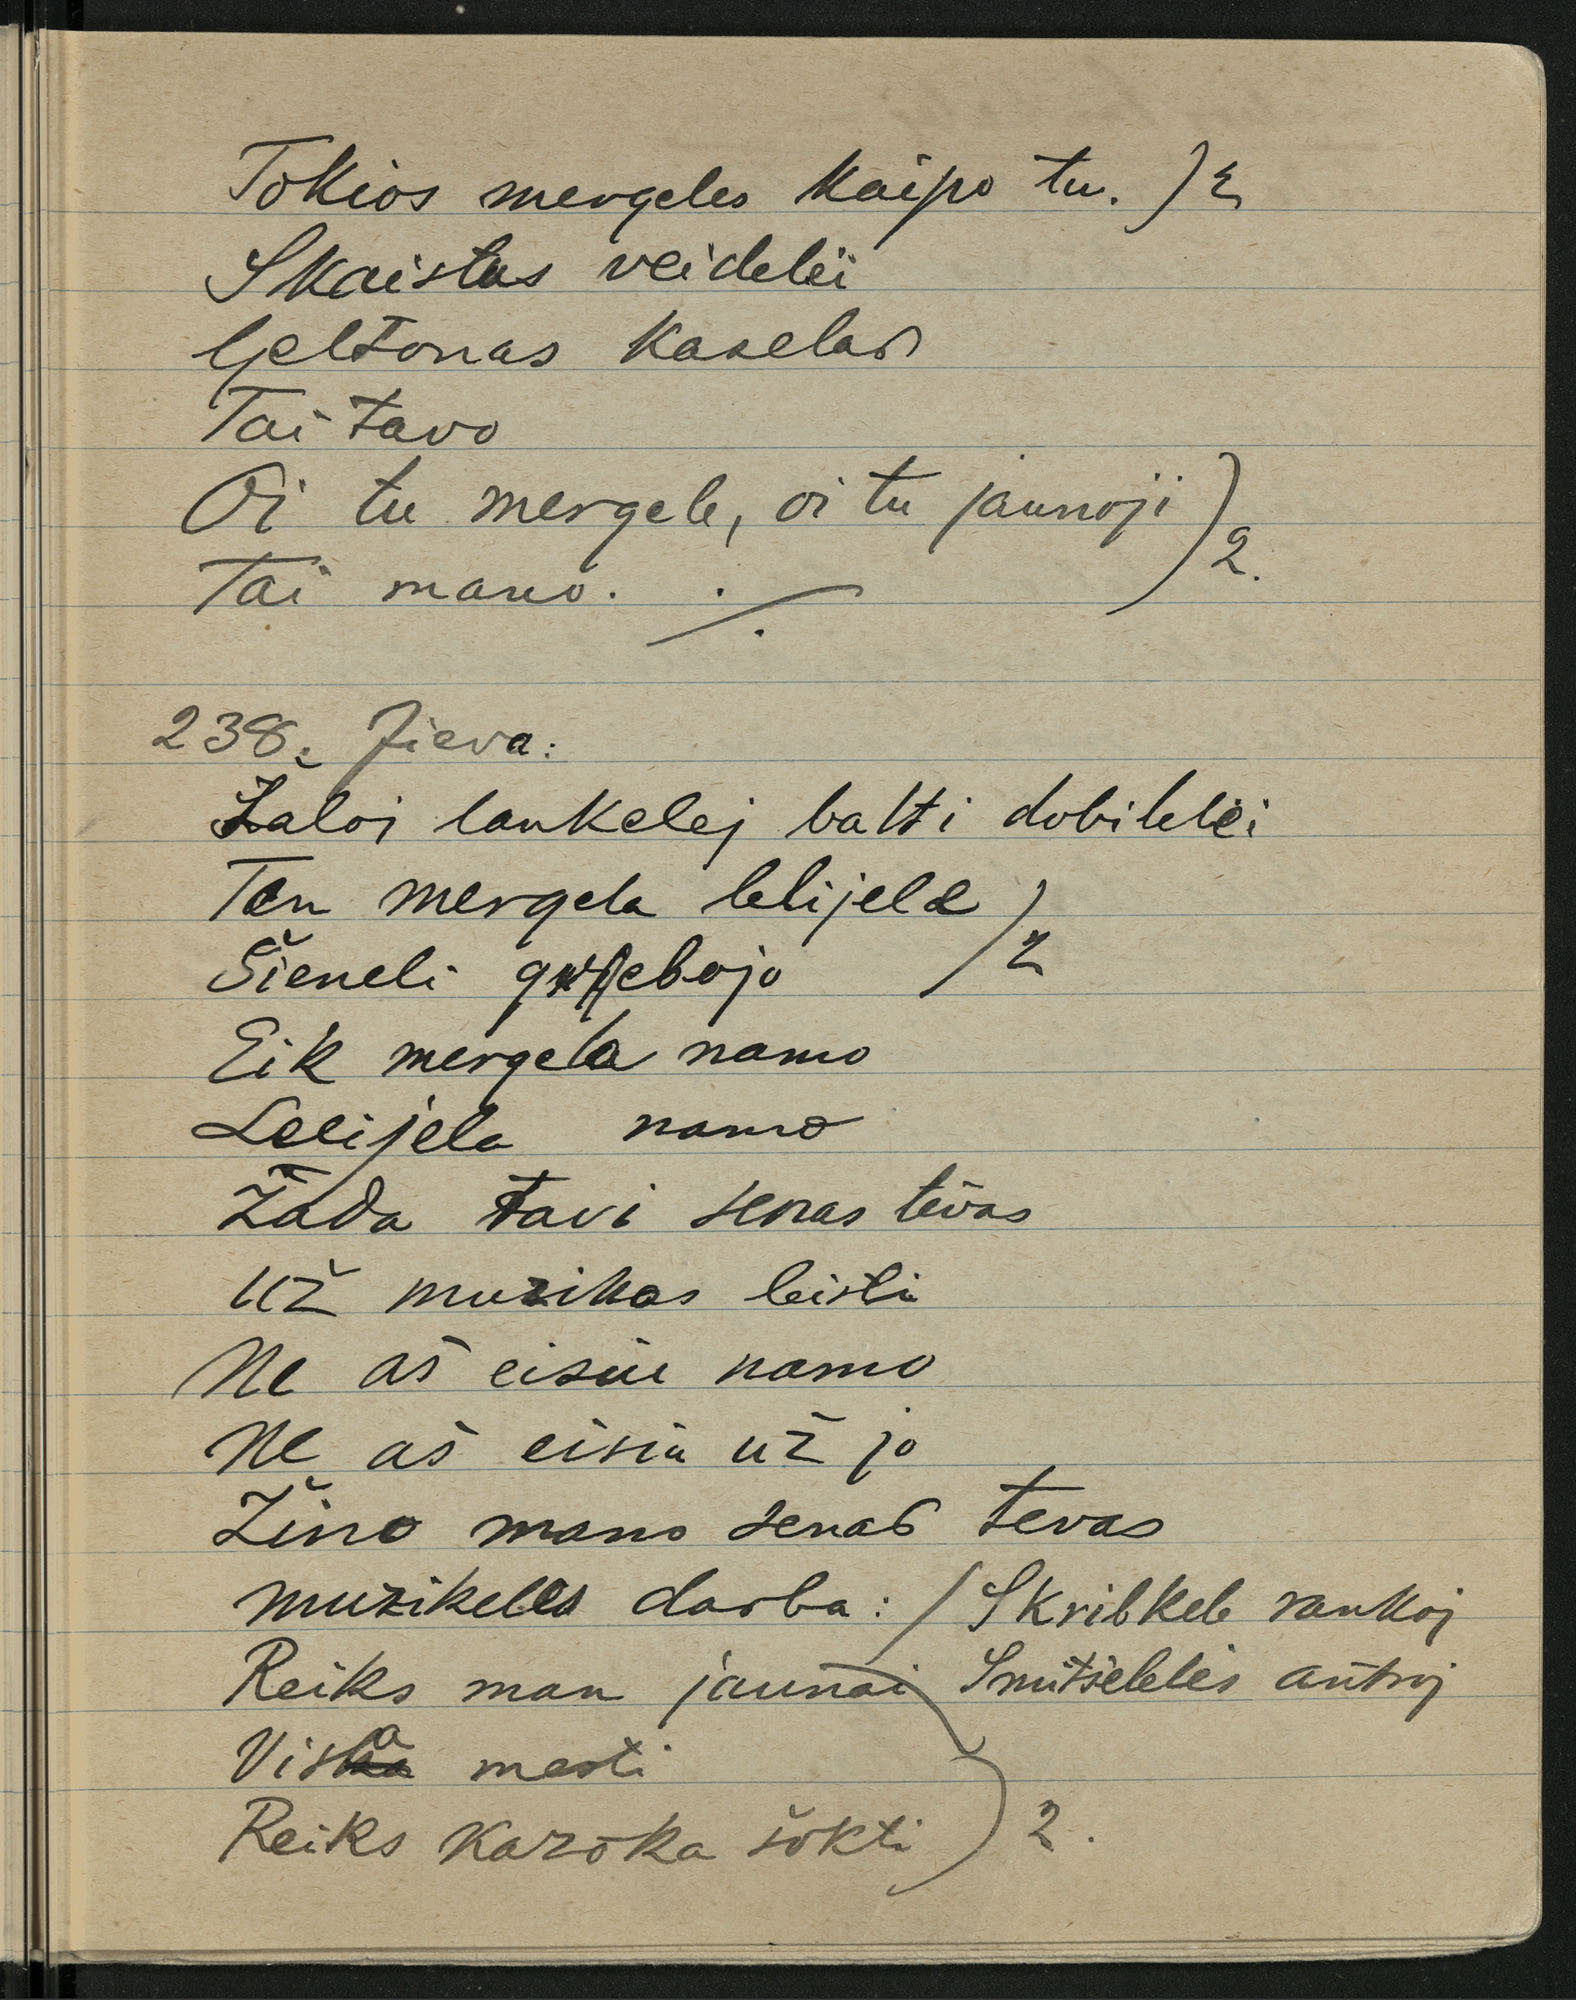 Tokios mergeles kaipo tu. ) 2
Skaistus veidelei
Geltonas kaselas
Tai tavo
Oi tu mergele, oi tu jaunoji ) 2.
Tai mano. ./.
238. Jieva:
Žaloj lankelej balti dobilelei
Ten mergela lelijela ) 2
Šieneli grebojo
Eik mergela namo
Lelijela namo
Žada tavi senas tėvas
Už muzikas leisti
Ne aš eisiu namo
Ne aš eisiu už jo
Žino mano senas tevas
muzikeles darba: / Skribkele rankoj
Reiks man jaunai Smitšeleles antroj
Viska mesti
Reiks kazoka šokti ) 2.